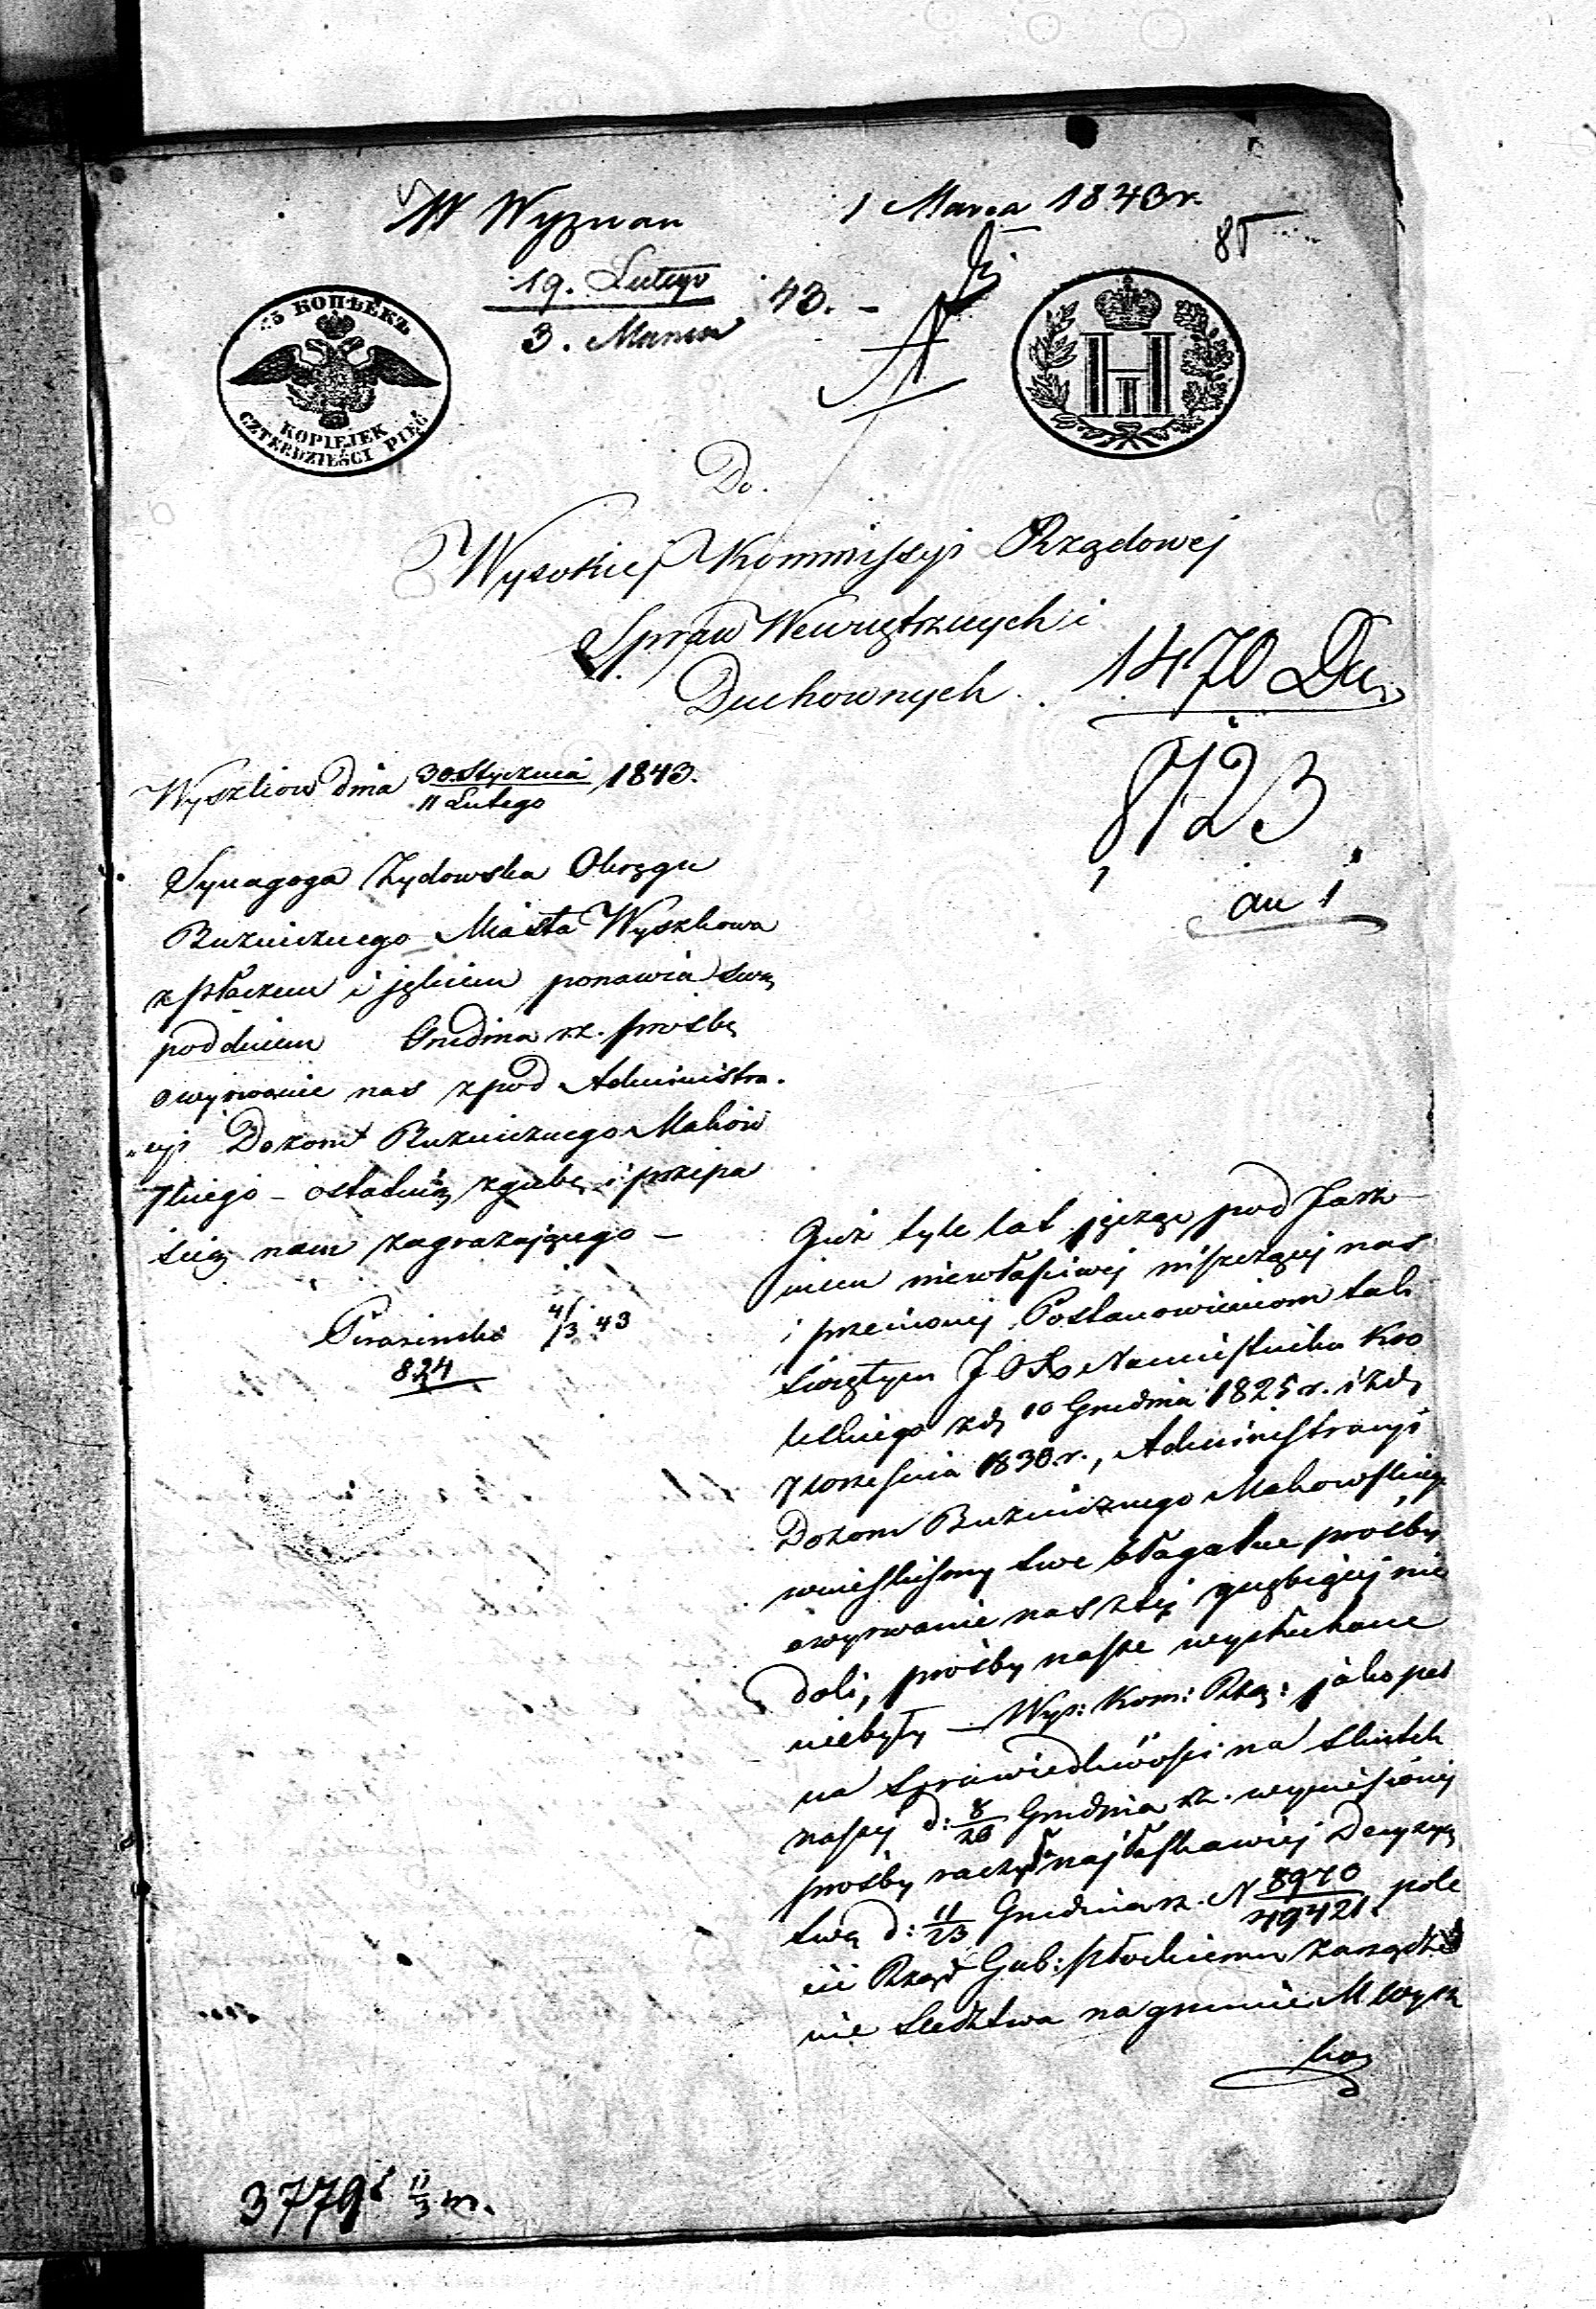 W Wyznan
1 Marca 1843 r.
85
19. Lutego
3. Marca
43. –
45 КОПѢЕКЪ
KOPIEJEK
CZTERDZIEŚCI PIĘĆ
Do.
Wysokiej Kommissyi Rządowej
Spraw Wewnętrznych i
Duchownych.
1470
8723
Wyszków dnia 30. Stycznia / 11 Lutego 1843.
Synagoga Żydowska Okręgu
Bużnicznego Miasta Wyszkowa
z płaczem i jękiem ponawia swą
pod dniem Grudnia r.z. prośbę
o wyrwanie nas z pod Administra-
cyi Dozoru Bużnicznego Maków
skiego – ostatnią zgubę i przepa
ścią nam zagrażającego –
4/3 43
824
Już tyle lat jęcząc pod Jarz
mem niewłaściwej niszczącej nas
i przeciwnej Postanowieniom tak
świętym J O Xo Namiestnika Kró
lelskiego z d, 10 Grudnia 1825 r. i z d,
7 września 1830. r., Administracyi
Dozoru Bużnicznego Makowskieg
wnieśliśmy swe błagalne prośby
o wyrwanie nas z tej gnębiącej nie
doli, prośby nasze wysłuchane
niebyły – Wys: Kom: Rzą: jako peł
na sprawiedliwości na skutek
naszej d: 8/20 Grudnia r.z. wyniesionej
prośby raczyła najłaskawiej Decyzyą
swą d: 11/23 Grudnia r.z. N 8970/49421 pole
cić Rząd Gub: Płockiemu zarządze
nie śledztwa na gruncie M Wysz
kow
3779 11/3 m.